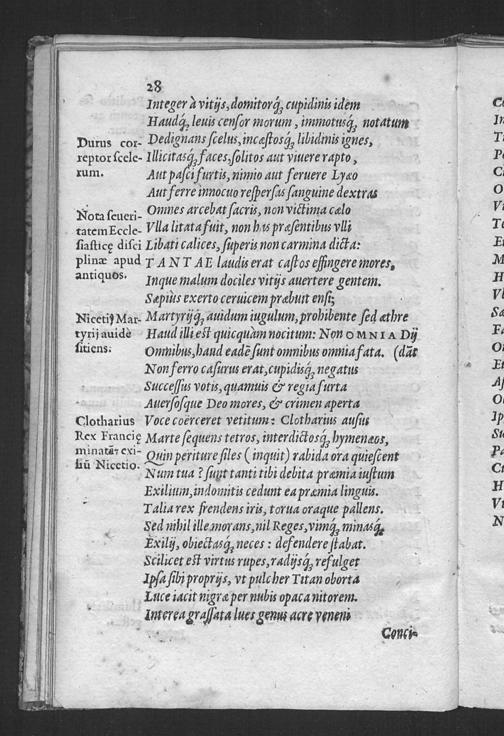 28
Integer à vitijs, domitorq́; cupidinis idem
Haudq́; leuis censor morum, immotusq́; notatum
Dedignans scelus, incæstosq́; libidinis ignes,
Illicitasq́; faces, solitos aut viuere rapto,
Aut pasci furtis, nimio aut feruere Lyæo
Aut ferre innocuo respersas sanguine dextras
Omnes arcebat sacris, non victima cælo
Vlla litata fuit, non his præsentibus vlli
Libati calices, superis non carmina dicta:
TANTAE laudis erat castos effingere mores,
Inque malum dociles vitijs auertere gentem.
Sæpius exerto ceruicem præbuit ensi;
Martyrijq́; auidum iugulum, prohibente sed æthre
Haud illi est quicquàm nocitum: Non OMNIA Dij
Omnibus, haud eadē sunt omnibus omnia fata. (dāt
Non ferro casurus erat, cupidisq́; negatus
Successus votis, quamuis & regia furta
Auersosque Deo mores, & crimen aperta
Voce coërceret vetitum: Clotharius ausus
Marte sequens tetros, interdictosq́; hymenæos,
Quin periture siles (inquit) rabida ora quiescent
Num tua? sunt tanti tibi debita præmia iustum
Exilium, indomitis cedunt ea præmia linguis.
Talia rex frendens iris, torua oraque pallens.
Sed nihil ille morans, nil Reges, vimq́; minasq́;
Exilij, obiectasq́; neces: defendere stabat.
Scilicet est virtus rupes, radijsq́; refulget
Ipsa sibi proprijs, vt pulcher Titan oborta
Luce iacit nigræ per nubis opaca nitorem.
Interea grassata lues genus acre veneni
Conci-
Durus cor-
reptor scele-
rum.
Nota seueri-
tatem Eccle-
siasticę disci
plinæ apud
antiquos.
Nicetij Mar-
tyrij auidè
sitiens.
Clotharius
Rex Francię
minatᷣ exi-
liū Nicetio.
C
In
T
P
C
O
V
T
E
M
H
V
S
F
O
E
A
O
Ip
S
P
C
H
V
N